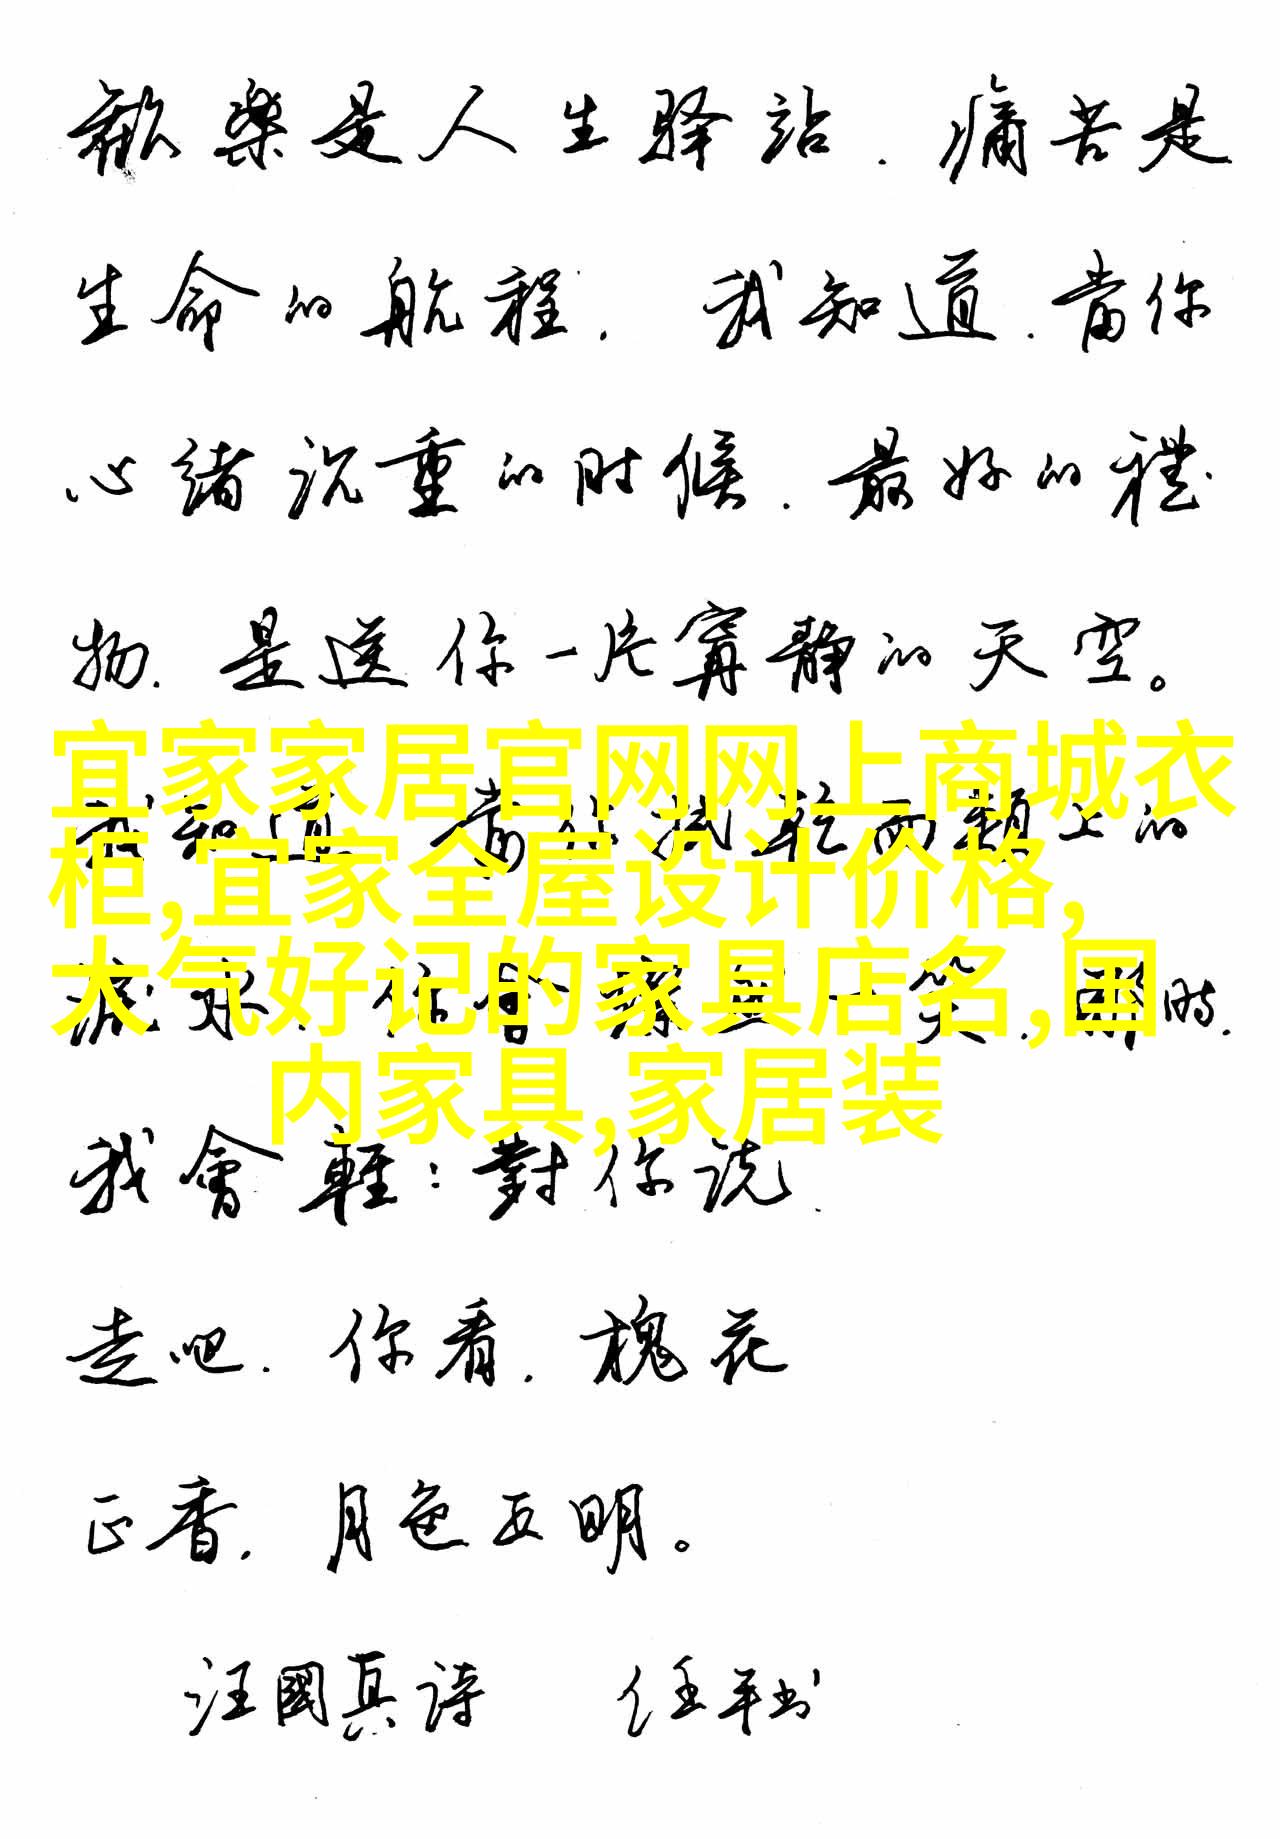 歡樂是人生驿站.痛苦是
生命的航程.我知道.當你
心緒沉重的时候.最好的禮
物.是送你一片寧静的天空。
宜家家居官网网上商城衣
我知道 當你拭乾两頰上的
柜,宜家全屋设计价格,
大气好记的家具店名,国
淚水.你會 一笑.那時.
内家具,家居装
我會輕:對你说.
走吧.你看.槐花
正香.月色正明。
汪國真诗 任平书